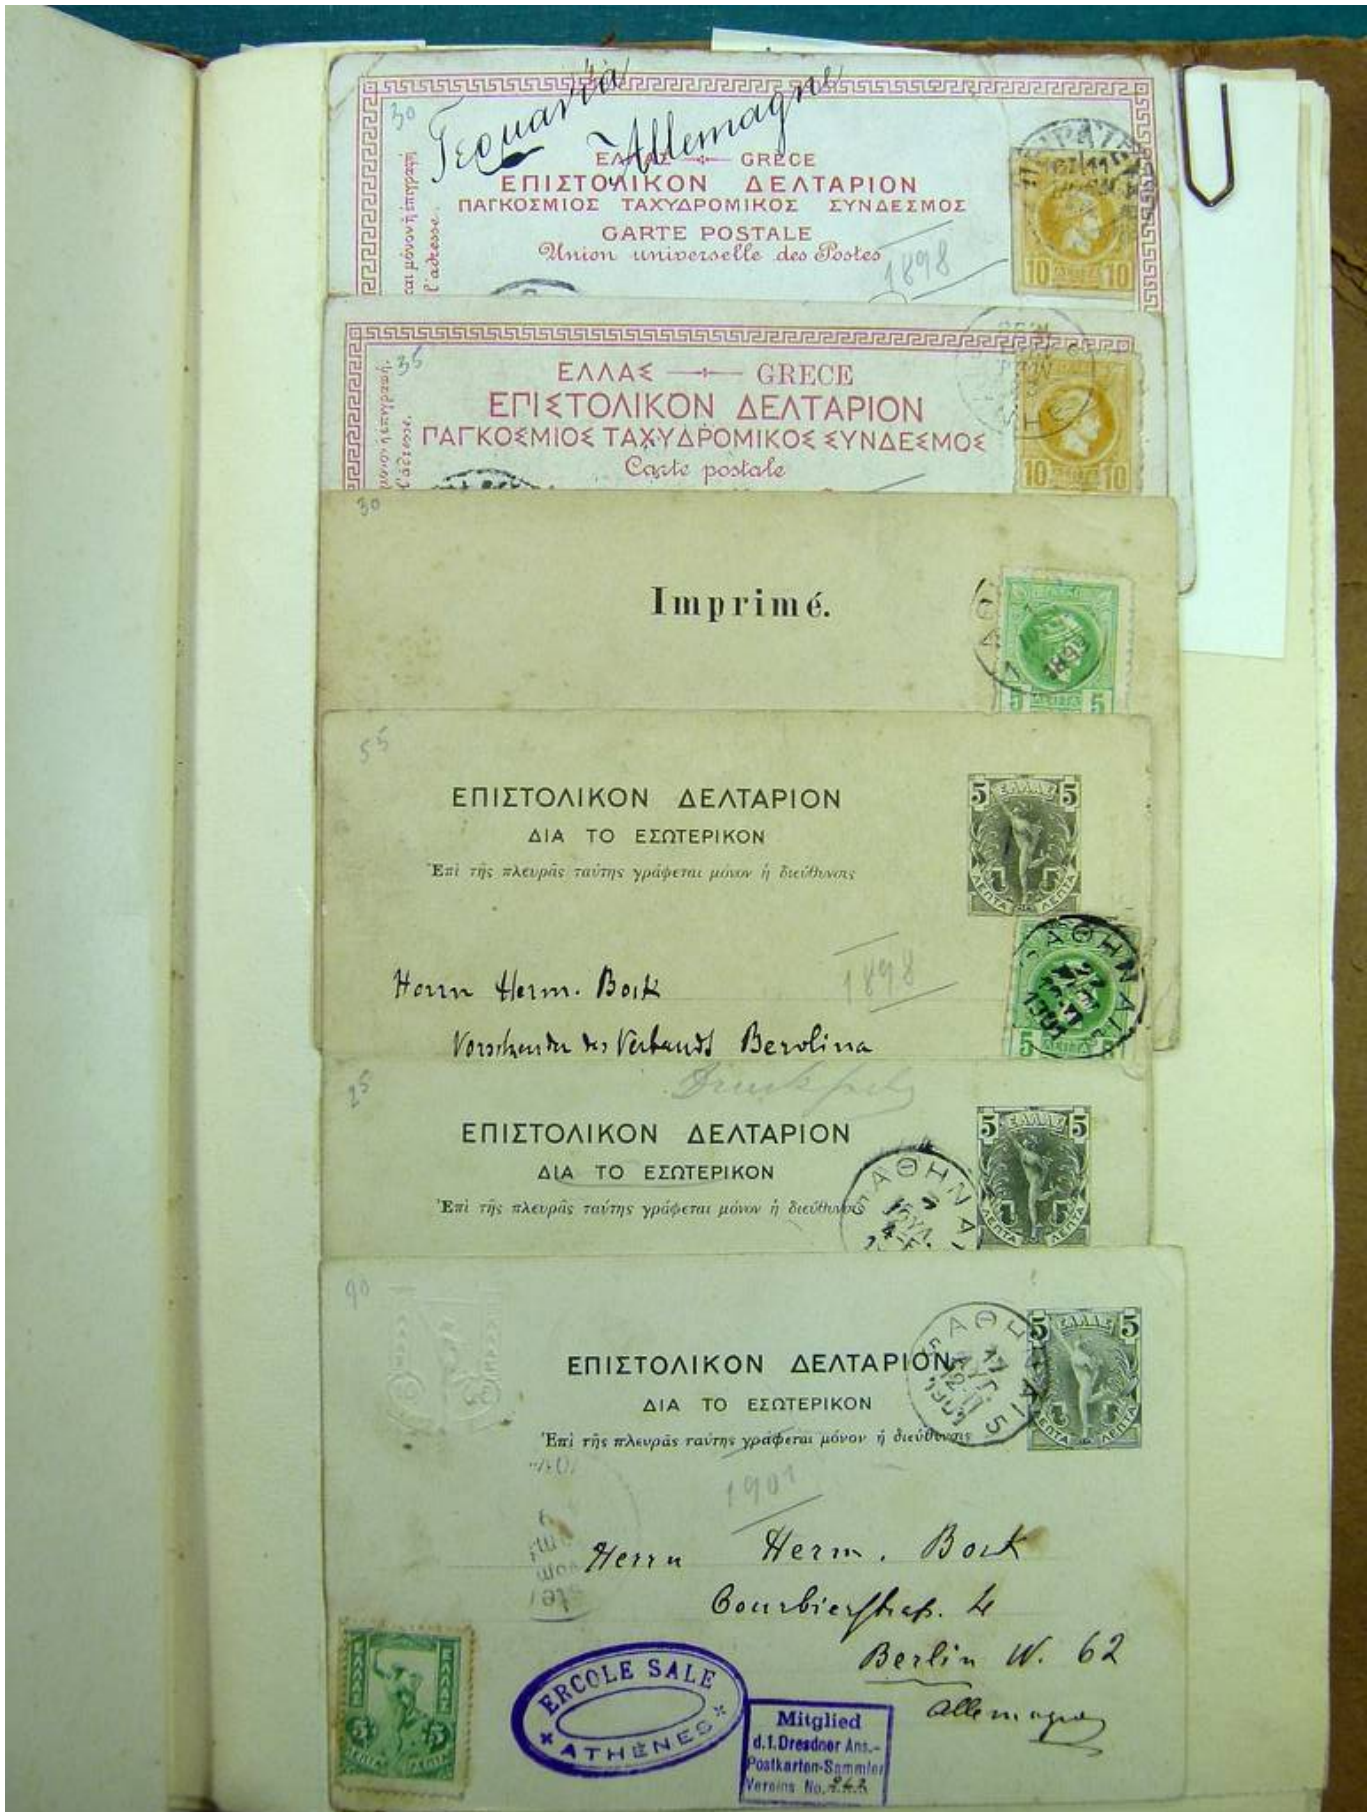 30
Γερμανία
Allemagne
ΕΛΛΑΣ GRÈCE
ΕΠΙΣΤΟΛΙΚΟΝ ΔΕΛΤΑΡΙΟΝ
ΠΑΓΚΟΣΜΙΟΣ ΤΑΧΥΔΡΟΜΙΚΟΣ ΣΥΝΔΕΣΜΟΣ
CARTE POSTALE
Union universelle des Postes
1898
μόνον ἡ ἐπιγραφή
l'adresse.
10 10
35
ΕΛΛΑΣ GRECE
ΕΠΙΣΤΟΛΙΚΟΝ ΔΕΛΤΑΡΙΟΝ
ΠΑΓΚΟΣΜΙΟΣ ΤΑΧΥΔΡΟΜΙΚΟΣ ΣΥΝΔΕΣΜΟΣ
Carte postale
ἡ ἐπιγραφή.
l'adresse.
10 10
30
Imprimé.
5 5
55
ΕΠΙΣΤΟΛΙΚΟΝ ΔΕΛΤΑΡΙΟΝ
ΔΙΑ ΤΟ ΕΣΩΤΕΡΙΚΟΝ
Ἐπὶ τῆς πλευρᾶς ταύτης γράφεται μόνον ἡ διεύθυνσις
5 ΕΛΛΑΣ 5
ΛΕΠΤΑ ΛΕΠΤΑ
1898
Herrn Herm. Bork
Vorsitzender des Verbands Berolina
ΑΘΗΝΑΙ
1901
5
25
ΕΠΙΣΤΟΛΙΚΟΝ ΔΕΛΤΑΡΙΟΝ
ΔΙΑ ΤΟ ΕΣΩΤΕΡΙΚΟΝ
Ἐπὶ τῆς πλευρᾶς ταύτης γράφεται μόνον ἡ διεύθυνσις
ΑΘΗΝΑΙ
ΙΟΥΛ
5 ΕΛΛΑΣ 5
ΛΕΠΤΑ ΛΕΠΤΑ
90
ΕΠΙΣΤΟΛΙΚΟΝ ΔΕΛΤΑΡΙΟΝ
ΔΙΑ ΤΟ ΕΣΩΤΕΡΙΚΟΝ
Ἐπὶ τῆς πλευρᾶς ταύτης γράφεται μόνον ἡ διεύθυνσις
17
ΑΥΓ.
1901
5 ΕΛΛΑΣ 5
ΛΕΠΤΑ ΛΕΠΤΑ
1901
Herrn Herm. Bork
Courbierstraß. 4
Berlin W. 62
Allemagne
ΕΛΛΑΣ ΕΛΛΑΣ
5 5
ΛΕΠΤΑ ΛΕΠΤΑ
ERCOLE SALE
ATHÈNES
Mitglied
d.1.Dresdner Ans.-
Postkarten-Sammler
Vereins No. 242